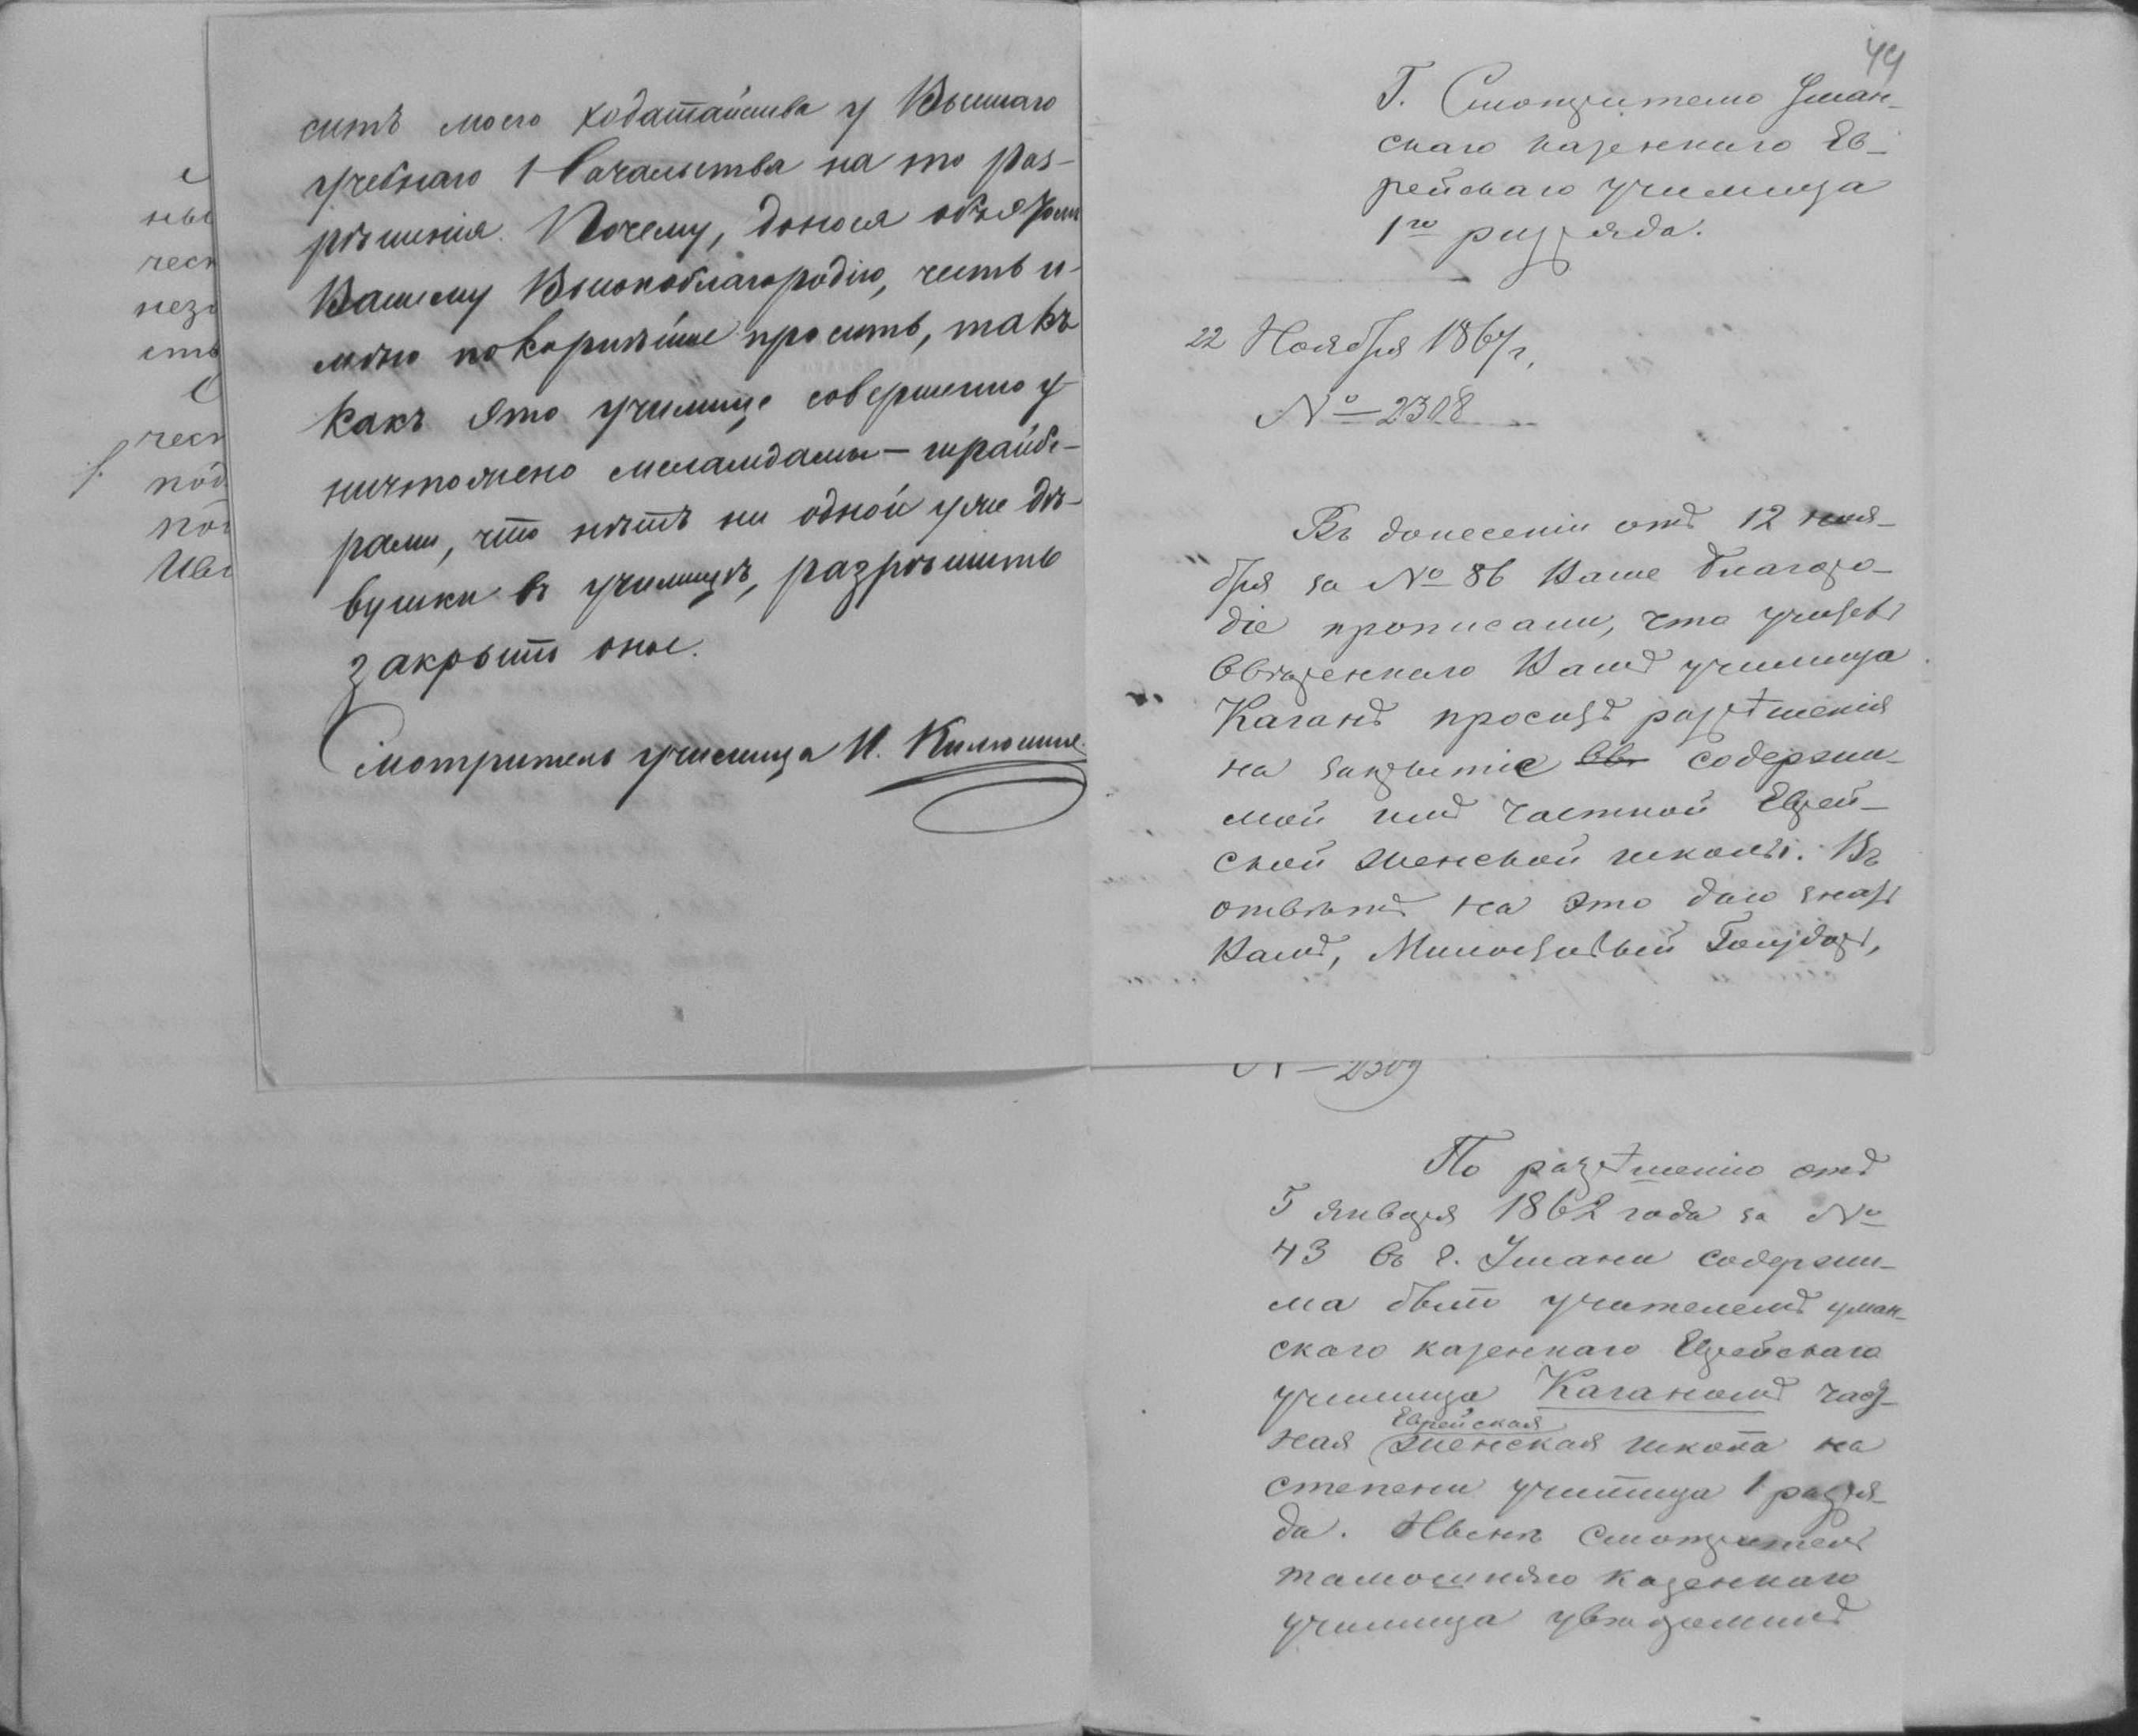 ситъ моего ходатайства у Высшаго
учебнаго Начальства на то раз-
рѣшенія. Почему, донося объ этомъ
Вашему Высокоблагородію, честь и-
мѣю покорнѣйше просить, такъ
какъ это училище совершенно у-
ничтожено меламдами-шрайбе-
рами, что нѣтъ ни одной уже дѣ-
вушки въ училищѣ, разрѣшить
закрыть оное.
Смотритель училища И.
44
Г. Смотрителю Уман-
скаго казеннаго Ев-
рейскаго училища
1го разряда.
22 Ноября 1867 г.
№ 2308
Въ донесеніи отъ 12 ноя-
бря за № 86 Ваше благоро-
діе прописали, что учитель
ввѣреннаго Вамъ училища
Каганъ проситъ разрѣшенія
на закрытіе вв содержи-
мой имъ частной Еврей-
ской женской школы. Въ
отвѣтъ на это даю знать
Вамъ, Милостивый Государь,
№ 2309
По разрѣшенію отъ
5 января 1862 года за №
43 въ г. Умани содержи-
ма была учителемъ уман-
скаго казеннаго Еврейскаго
училища Каганомъ част-
Еврейская
ная женская школа на
степени училища 1 разря-
да. Нынѣ Смотритель
тамошняго казеннаго
училища увѣдомилъ
ны
чест
незо
сть
чест
под
по